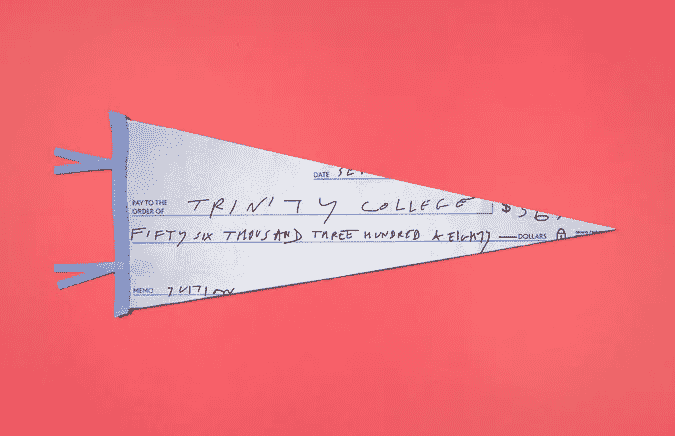 DATE SE
PAY TO THE
ORDER OF TRINITY COLLEGE $ 56,
FIFTY SIX THOUSAND THREE HUNDRED & EIGHTY — DOLLARS
MEMO TUITION